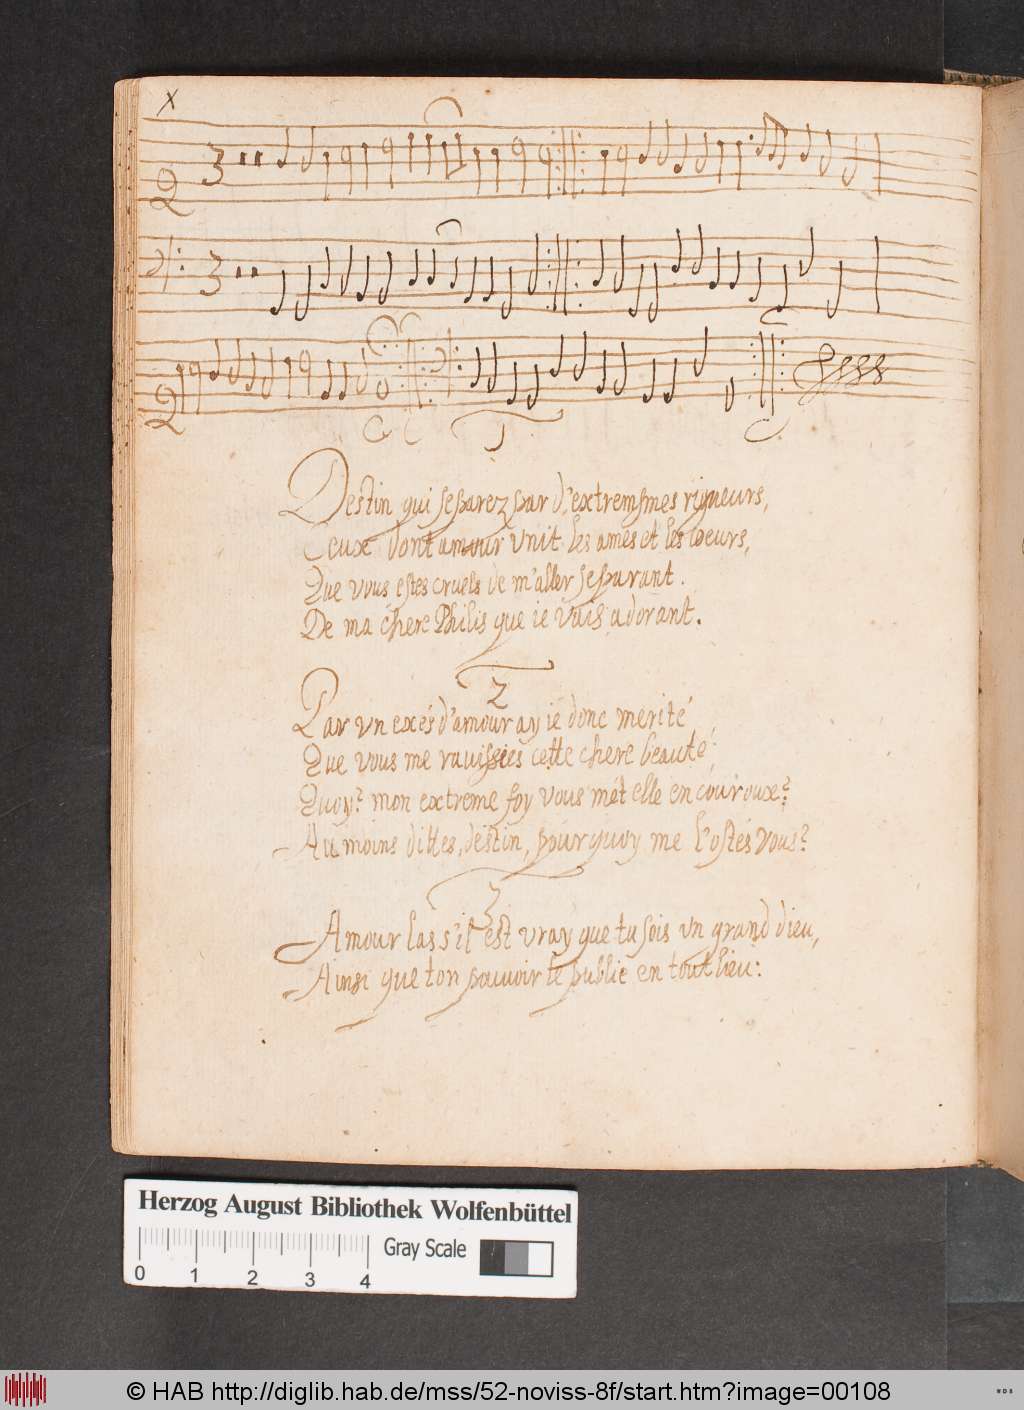 X
3
3
1
Destin qui separez par d'extresmes rigueurs,
Ceux dont amour vnit les ames et les coeurs,
Que vous estes cruels de m'aller separant.
De ma chere Philis que ie vais adorant.
2
Par vn exés d'amour ay ie donc merité
Que vous me rauissies cette chere beauté;
Quoy? mon extreme foy vous mét elle en couroux?
Au moins dittes, destin, pourquoy me l'ostés vous?
3
Amour las s'il est vray que tu sois vn grand dieu,
Ainsi que ton pouuoir se publie en tout lieu:
Herzog August Bibliothek Wolfenbüttel
Gray Scale
0 1 2 3 4
© HAB http://diglib.hab.de/mss/52-noviss-8f/start.htm?image=00108
WDB